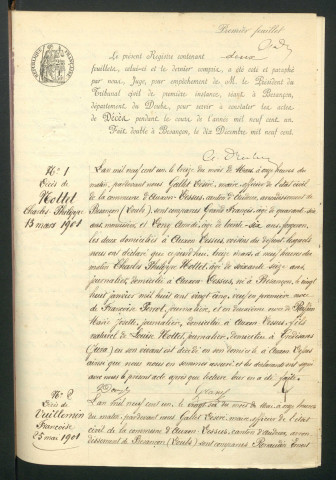 Premier feuillet
Le présent Registre contenant deux
feuillets, celui-ci et le dernier compris, a été coté et paraphé
par nous, Juge, pour empêchement de M. le Président du
Tribunal civil de première instance, séant à Besançon,
département du Doubs, pour servir à constater les actes
de Décès pendant le cours de l'année mil neuf cent un.
Fait double à Besançon, le dix Décembre mil neuf cent.
N° 1
Décès de
Hollet
Charles Philippe
13 mars 1901
L'an mil neuf cent un le treize du mois de Mars à onze heures du
matin, pardevant nous Gallet César, maire, officier de l'état civil
de la commune d'Auxon-Dessus, canton d'Audeux, arrondissement de
Besançon (Doubs), sont comparus Grand François, âgé de quarante-six
ans, et Cony âgé de trente-six ans,
les deux domiciliés à Auxon-Dessus, voisins du défunt, lesquels
nous ont déclaré que aujourd'hui treize mars, à neuf heures du
matin Charles Philippe Hollet, âgé de soixante seize ans,
journalier, domicilié à Auxon-Dessus, né à Besançon, le vingt
huit janvier mil huit cent vingt cinq, veuf en première
de Françoise Perrot, journalière, et en deuxième
Marie journalière, domiciliée à Auxon-Dessus, fils
naturel de Louise Hollet, journalière, domiciliée à
(Jura) en son vivant est décédé en son domicile à Auxon-Dessus
ainsi que nous nous en sommes assuré et les déclarants ont signé
avec nous le présent acte après que lecture leur en a été faite.
N° 2
Décès de
Vuillemin
Françoise
25 mars 1901
L'an mil neuf cent un, le vingt six du mois de mars à heures
du matin, pardevant nous Gallet César, maire, officier de l'état
civil de la commune d'Auxon-Dessus, canton d'Audeux, arron-
dissement de Besançon (Doubs) sont comparus Ernest